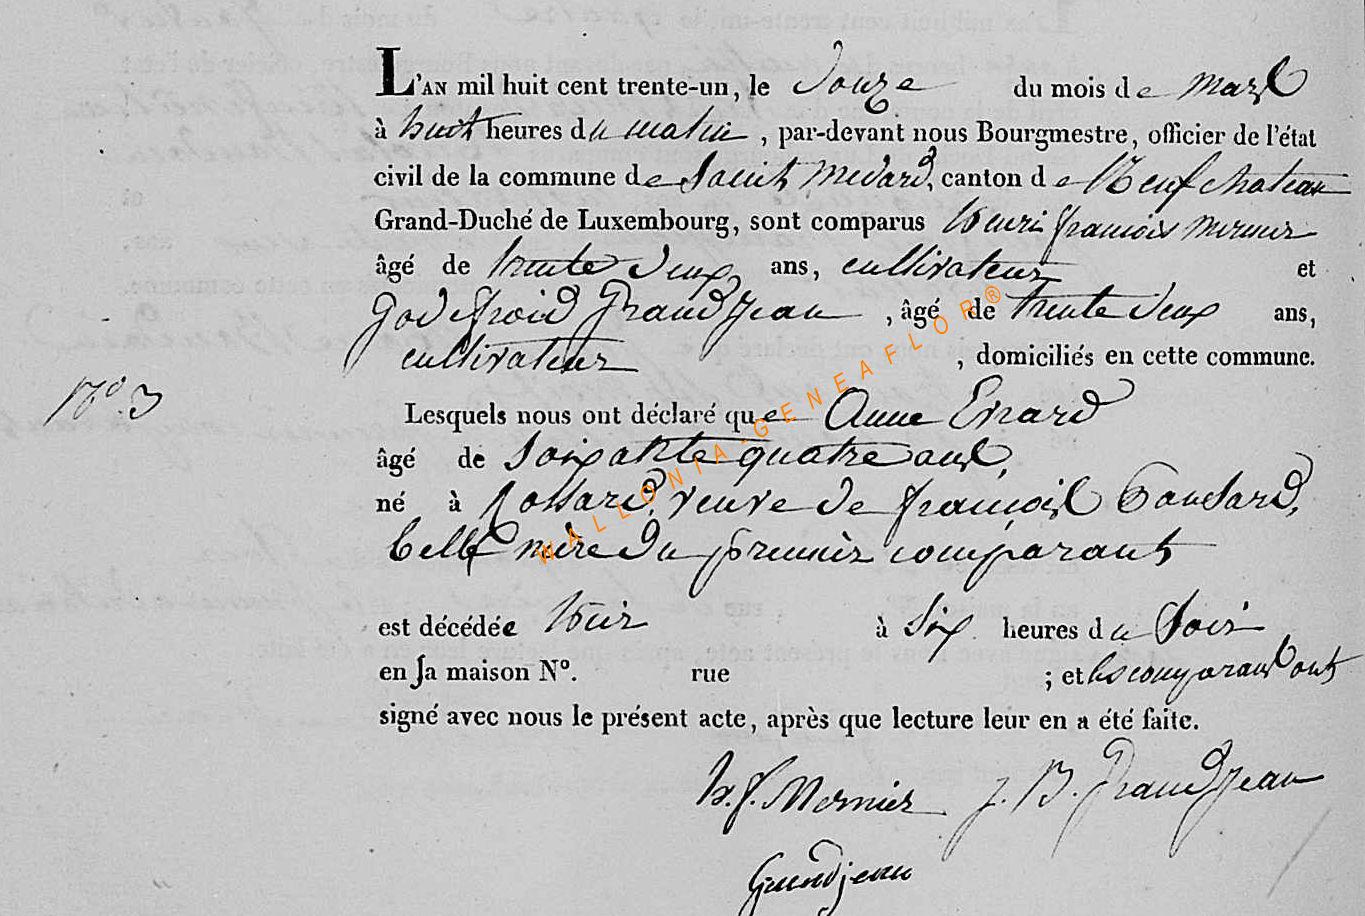 L'AN mil huit cent trente-un, le Douze du mois de mars
à huit heures du matin, par-devant nous Bourgmestre, officier de l'état
civil de la commune de Saint Medard, canton de Neufchateau
Grand-Duché de Luxembourg, sont comparus henri françois mernier
âgé de trente Deux ans, cultivateur et
Godefroid Grandjean, âgé de trente Deux ans,
cultivateur, domiciliés en cette commune.
N° 3
Lesquels nous ont déclaré que Anne Evrard
âgé de Soixante quatre ans,
né à Rossard, veuve de françois Goudard,
belle mère du premier comparant
est décédée hier à Six heures du Soir
en sa maison N°. rue ; et les comparans ont
signé avec nous le présent acte, après que lecture leur en a été faite.
h. f. Mernier J. B. Grandjean
Grandjean
WALLONIA-GENEAFLOR®